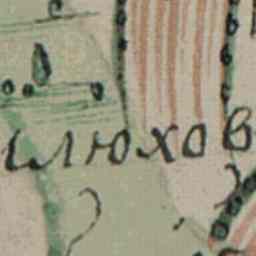 илюхов